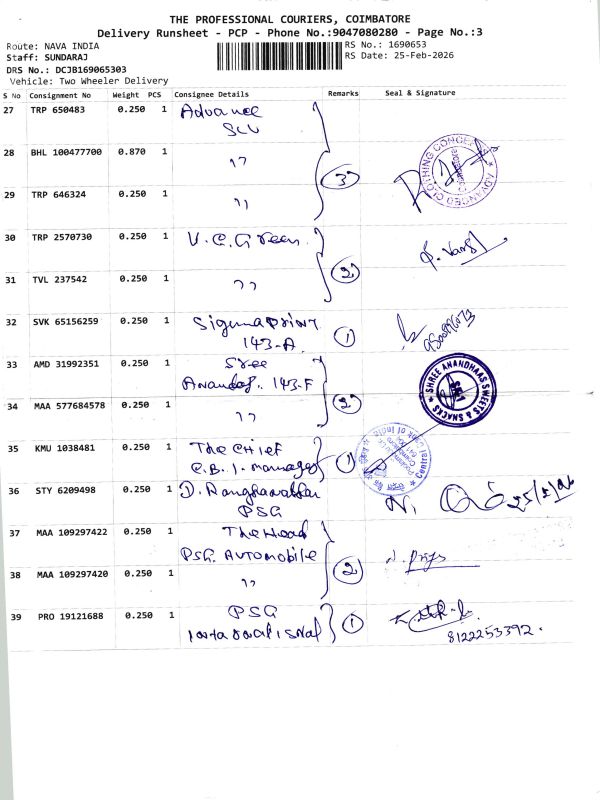 THE PROFESSIONAL COURIERS, COIMBATORE
Delivery Runsheet - PCP - Phone No.:9047080280 - Page No.:3
Route: NAVA INDIA
RS No.: 1690653
Staff: SUNDARAJ
RS Date: 25-Feb-2026
DRS No.: DCJB169065303
Vehicle: Two Wheeler Delivery
S No Consignment No Weight PCS Consignee Details Remarks Seal & Signature
27 TRP 650483 0.250 1 Advance
28 BHL 100477700 0.870 1 ,, 3
ADVANCED CLOTHING CONCEPTS
29 TRP 646324 0.250 1 ,,
30 TRP 2570730 0.250 1 V.C.Green
31 TVL 237542 0.250 1 ,, 2
32 SVK 65156259 0.250 1 Sigmaprint 1
143-A
33 AMD 31992351 0.250 1 Sree
Anandas. 143-F
SHREE ANANDHAAS SWEETS & SNACKS
34 MAA 577684578 0.250 1 ,, 2
35 KMU 1038481 0.250 1 The Chief
C.B.I. Manager 1
36 STY 6209498 0.250 1 D.
PSG
37 MAA 109297422 0.250 1 The Head
PSG. AUTOMOBILE
38 MAA 109297420 0.250 1 ,, 2
39 PRO 19121688 0.250 1 PSG 1
8122253392.